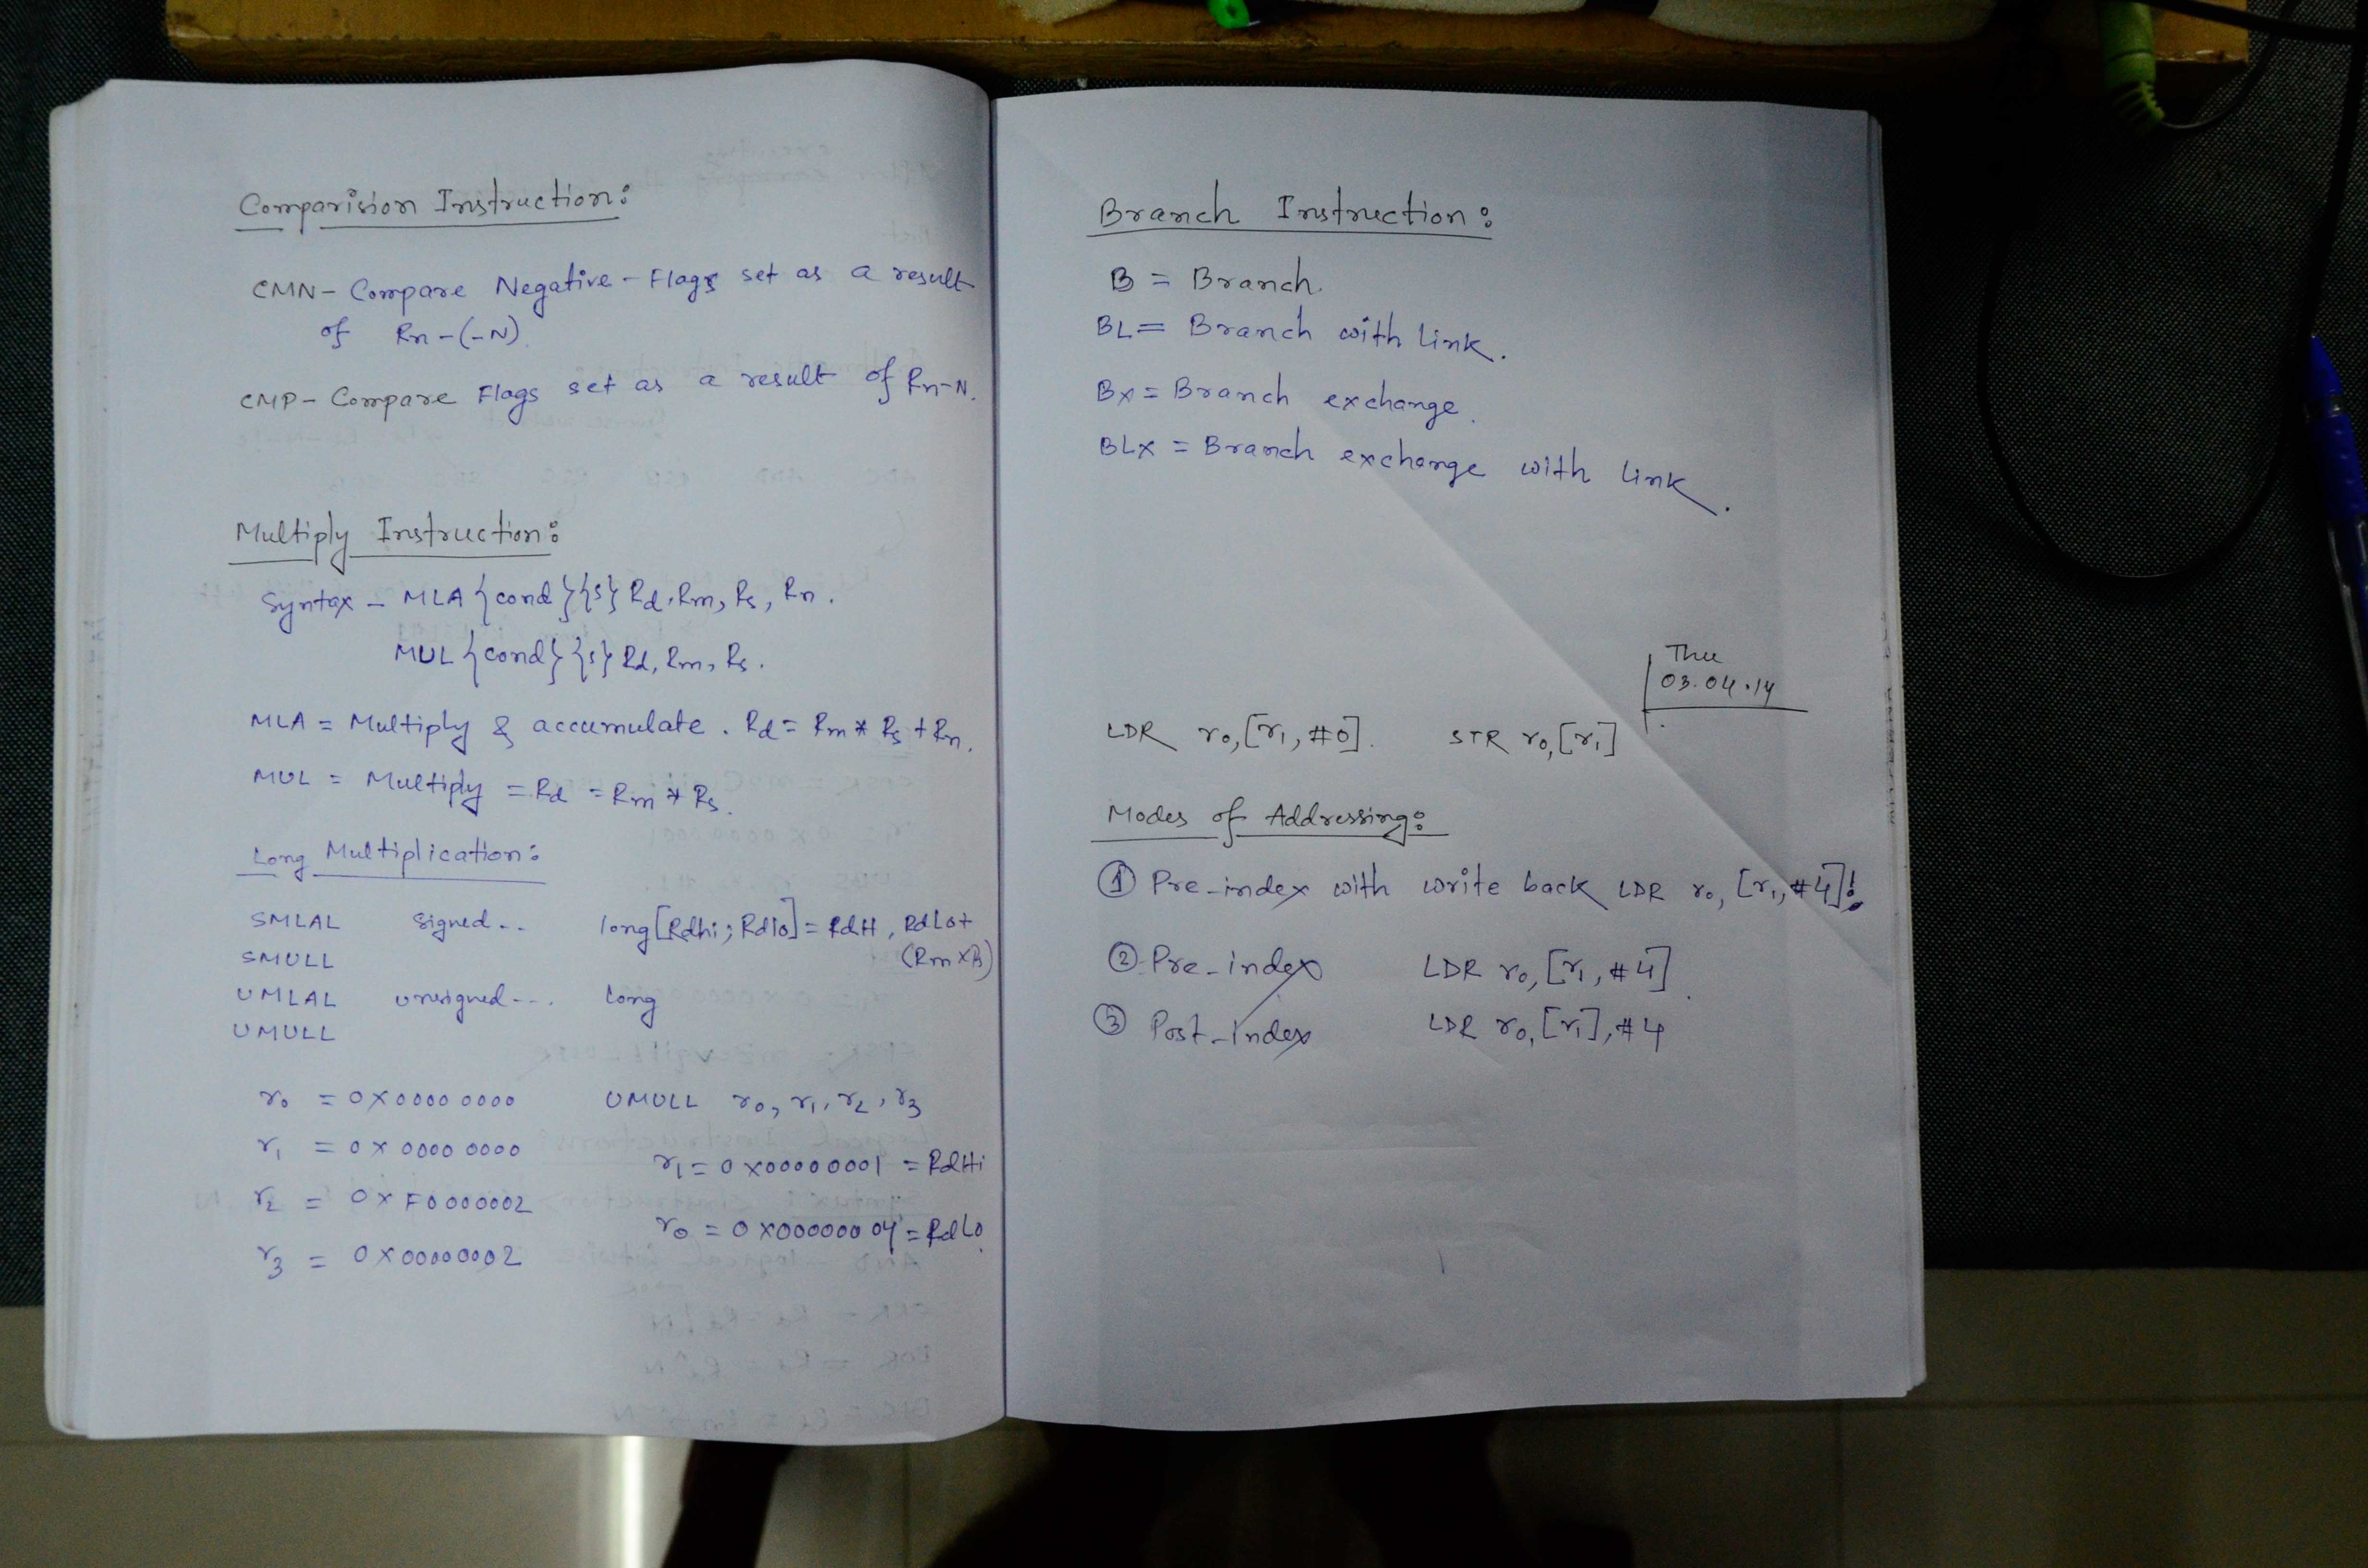 Comparision Instruction:
CMN - Compare Negative - Flags set as a result
of Rn - (-N)
CMP - Compare Flags set as a result of Rn-N.
Multiply Instruction:
Syntax - MLA {cond}{s} Rd, Rm, Rs, Rn.
MUL {cond} {s} Rd, Rm, Rs.
MLA = Multiply & accumulate. Rd = Rm * Rs + Rn.
MUL = Multiply = Rd = Rm * Rs.
Long Multiplication:
SMLAL signed .. long [Rdhi; Rdlo] = RdH, RdLo+
SMULL (Rm X Rs)
UMLAL unsigned --. long
UMULL
r0 = 0X0000 0000 UMULL r0, r1, r2, r3
r1 = 0 X 0000 0000
r1 = 0 X00000001 = RdHi
r2 = 0X F0000002
r0 = 0 X00000004 = RdLo
r3 = 0X00000002
Branch Instruction:
B = Branch.
BL = Branch with link.
BX = Branch exchange.
BLX = Branch exchange with link.
Thu
03.04.14
LDR r0, [r1, #0]. STR r0, [r1]
Modes of Addressing:
① Pre-index with write back LDR r0, [r1, #4]!
② Pre-index LDR r0, [r1, #4].
③ Post-index LDR r0, [r1], #4